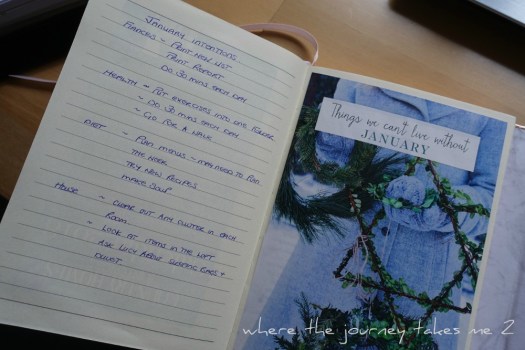 JANUARY INTENTIONS
FINANCES ~ PRINT NEW LIST
PRINT REPORT
DO 30 MINS EACH DAY
HEALTH ~ PUT EXERCISES INTO ONE
~ DO 30 MINS EACH DAY
~ GO FOR A WALK
DIET ~ PLAN MENUS ~ MAY NEED TO PLAN
THE WEEK
TRY NEW RECIPES
MAKE SOUP
HOUSE ~ CLEAR OUT ANY CLUTTER IN EACH
ROOM
~ LOOK AT ITEMS IN THE LOFT
ASK LUCY ABOUT +
Things we can't live without
JANUARY
where the journey takes me 2